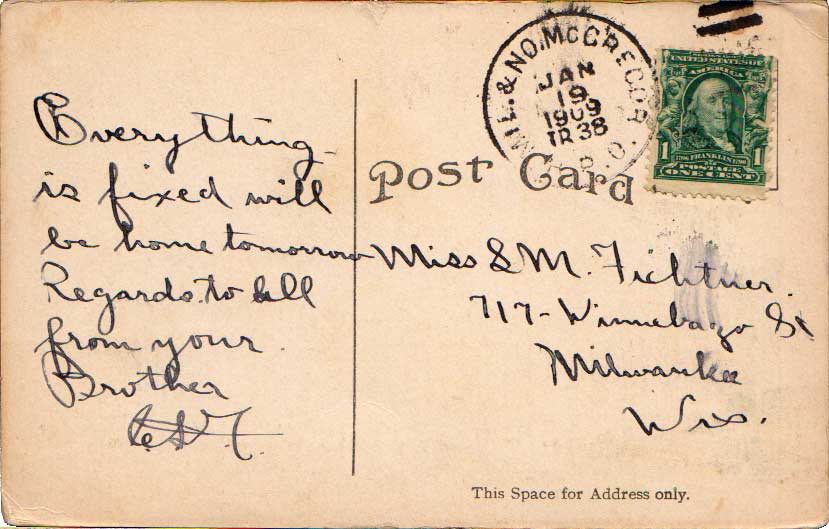 Everything
is fixed will
be home tomorrow
Regards to all
from your
Brother
MIL. & NO. McGREGOR
JAN
19
1909
TR 38
R.P.O.
UNITED STATES OF
AMERICA
1 FRANKLIN 1
POSTAGE
ONE CENT
Post Card
Miss L M. Fichtner.
717 - Winnebago St
Milwaukee
Wis.
This Space for Address only.